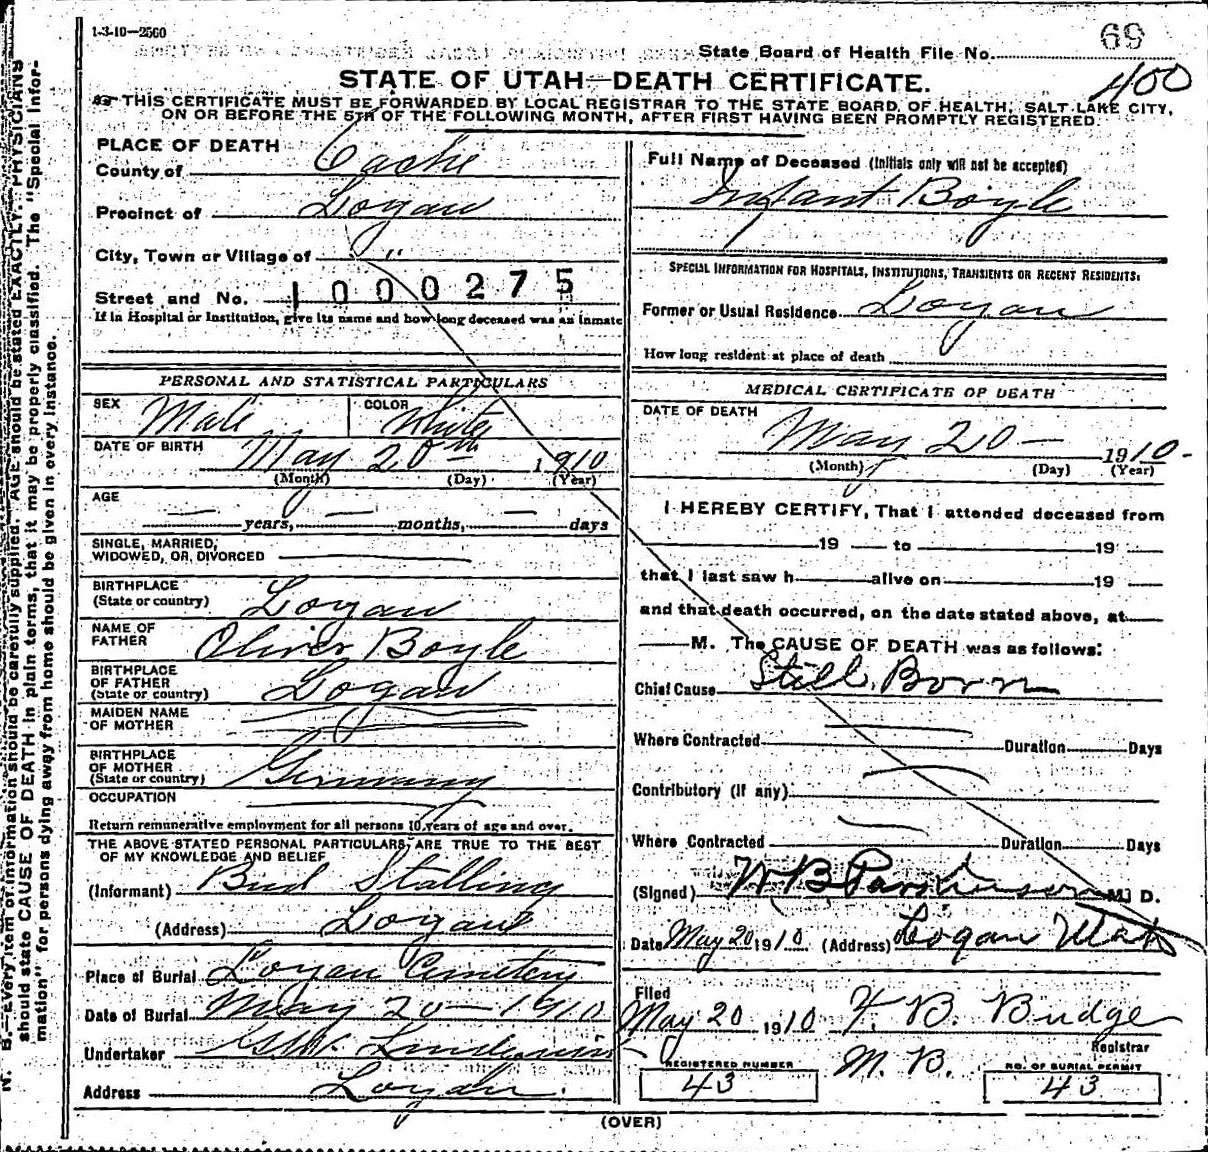 1-3-10-2560
69
State Board of Health File No.
400
STATE OF UTAH—DEATH CERTIFICATE.
THIS CERTIFICATE MUST BE FORWARDED BY LOCAL REGISTRAR TO THE STATE BOARD OF HEALTH, SALT LAKE CITY,
ON OR BEFORE THE 5TH OF THE FOLLOWING MONTH, AFTER FIRST HAVING BEEN PROMPTLY REGISTERED.
N. B.—Every item of information should be carefully supplied. AGE should be stated EXACTLY. PHYSICIANS
should state CAUSE OF DEATH in plain terms, that it may be properly classified. The "Special Infor-
mation" for persons dying away from home should be given in every instance.
PLACE OF DEATH
County of Cache
Precinct of Logan
City, Town or Village of "
Street and No. 1000275
If in Hospital or Institution, give its name and how long deceased was an inmate
PERSONAL AND STATISTICAL PARTICULARS
SEX Male COLOR White
DATE OF BIRTH May 20th 1910
(Month) (Day) (Year)
AGE
— years, — months, — days
SINGLE, MARRIED,
WIDOWED, OR DIVORCED
BIRTHPLACE
(State or country) Logan
NAME OF
FATHER Oliver Boyle
BIRTHPLACE
OF FATHER
(State or country) Logan
MAIDEN NAME
OF MOTHER
BIRTHPLACE
OF MOTHER
(State or country) Germany
OCCUPATION
Return remunerative employment for all persons 10 years of age and over.
THE ABOVE STATED PERSONAL PARTICULARS, ARE TRUE TO THE BEST
OF MY KNOWLEDGE AND BELIEF
(Informant) Bud Stallings
(Address) Logan
Place of Burial Logan Cemetery
Date of Burial May 20—1910
Undertaker
Address Logan
Full Name of Deceased (Initials only will not be accepted)
Infant Boyle
SPECIAL INFORMATION FOR HOSPITALS, INSTITUTIONS, TRANSIENTS OR RECENT RESIDENTS:
Former or Usual Residence Logan
How long resident at place of death
MEDICAL CERTIFICATE OF DEATH
DATE OF DEATH
May 20— 1910.
(Month) (Day) (Year)
I HEREBY CERTIFY, That I attended deceased from
19 — to 19
that I last saw h alive on 19
and that death occurred, on the date stated above, at
M. The CAUSE OF DEATH was as follows:
Chief Cause Still Born
Where Contracted Duration Days
Contributory (if any)
Where Contracted Duration Days
(Signed) W B Parkinson M. D.
Date May 20 1910. (Address) Logan Utah
Filed
May 20 1910 F. B. Budge
Registrar
M. B.
REGISTERED NUMBER
43
NO. OF BURIAL PERMIT
43
(OVER)